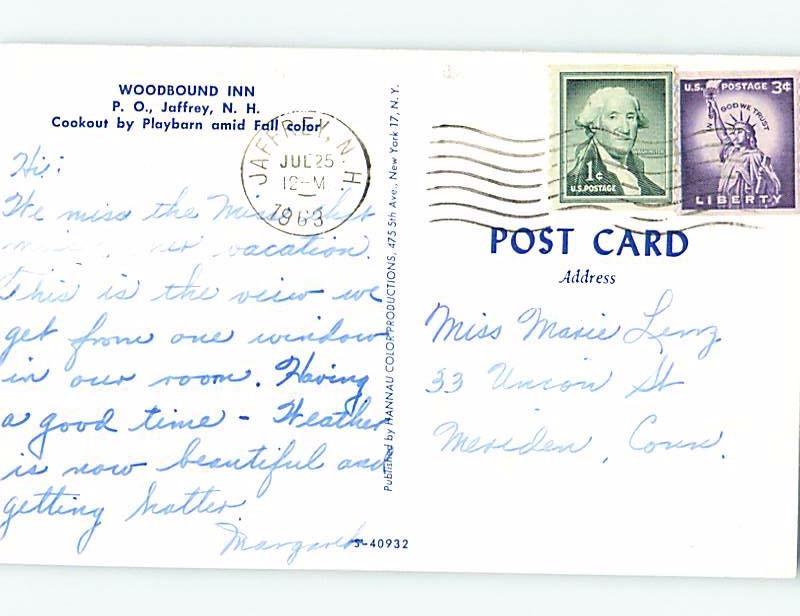 WOODBOUND INN
P. O., Jaffrey, N. H.
Cookout by Playbarn amid Fall color
Hi:
We miss the
vacation.
This is the view we
get from one window
in our room. Having
a good time - Weather
is now beautiful and
getting hotter.
Margaret
S-40932
Published by HANNAU COLOR PRODUCTIONS, 475 5th Ave., New York 17, N.Y.
JAFFREY, N.H.
JUL 25
12-M
1963
1¢
U.S. POSTAGE
U.S. POSTAGE 3¢
IN GOD WE TRUST
LIBERTY
POST CARD
Address
Miss Marie Lenz
33 Union St
Meriden, Conn.